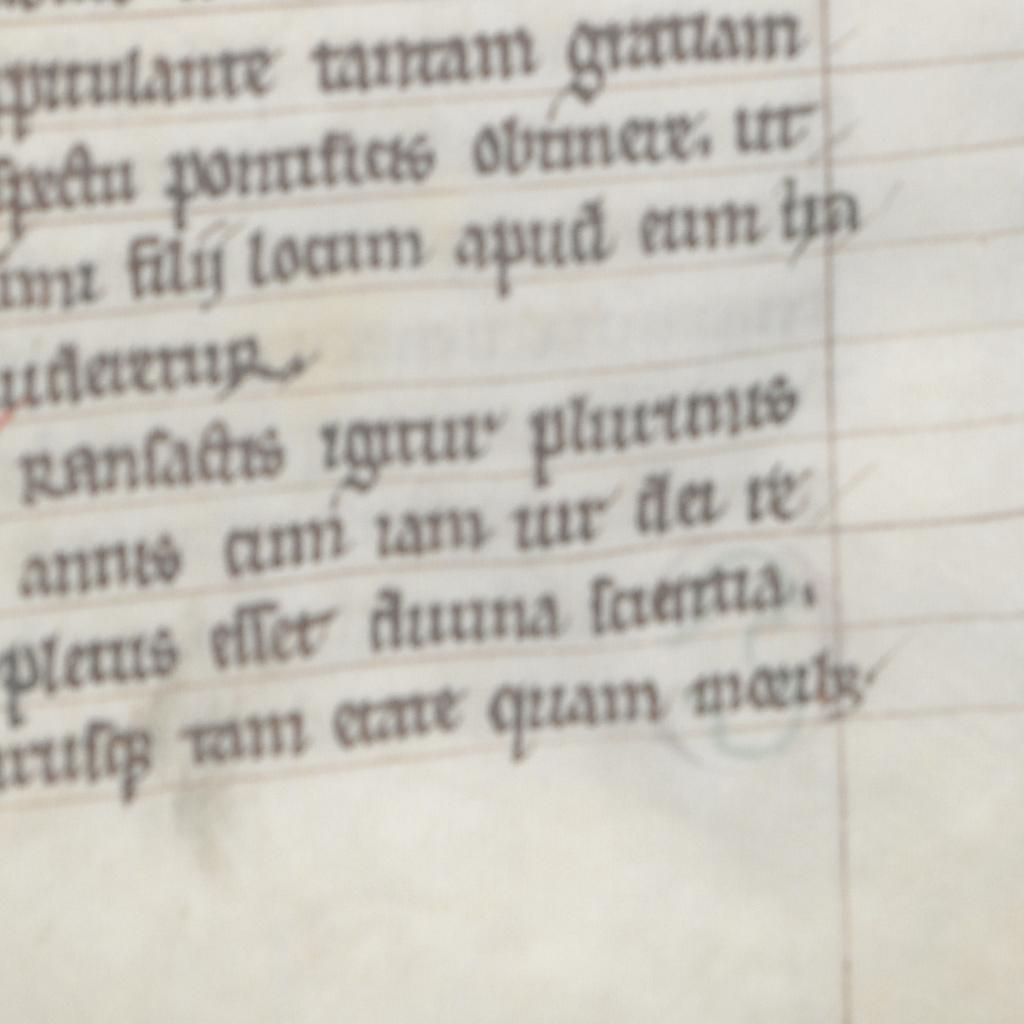 pitulante tantam gratiam
spectu pontificis obtinere. ut
imi filij locum apud eum
uideretur
Ransactis igitur plurimis
annis cum iam uir dei re
pletus esset diuina scientia.
tam etate quam